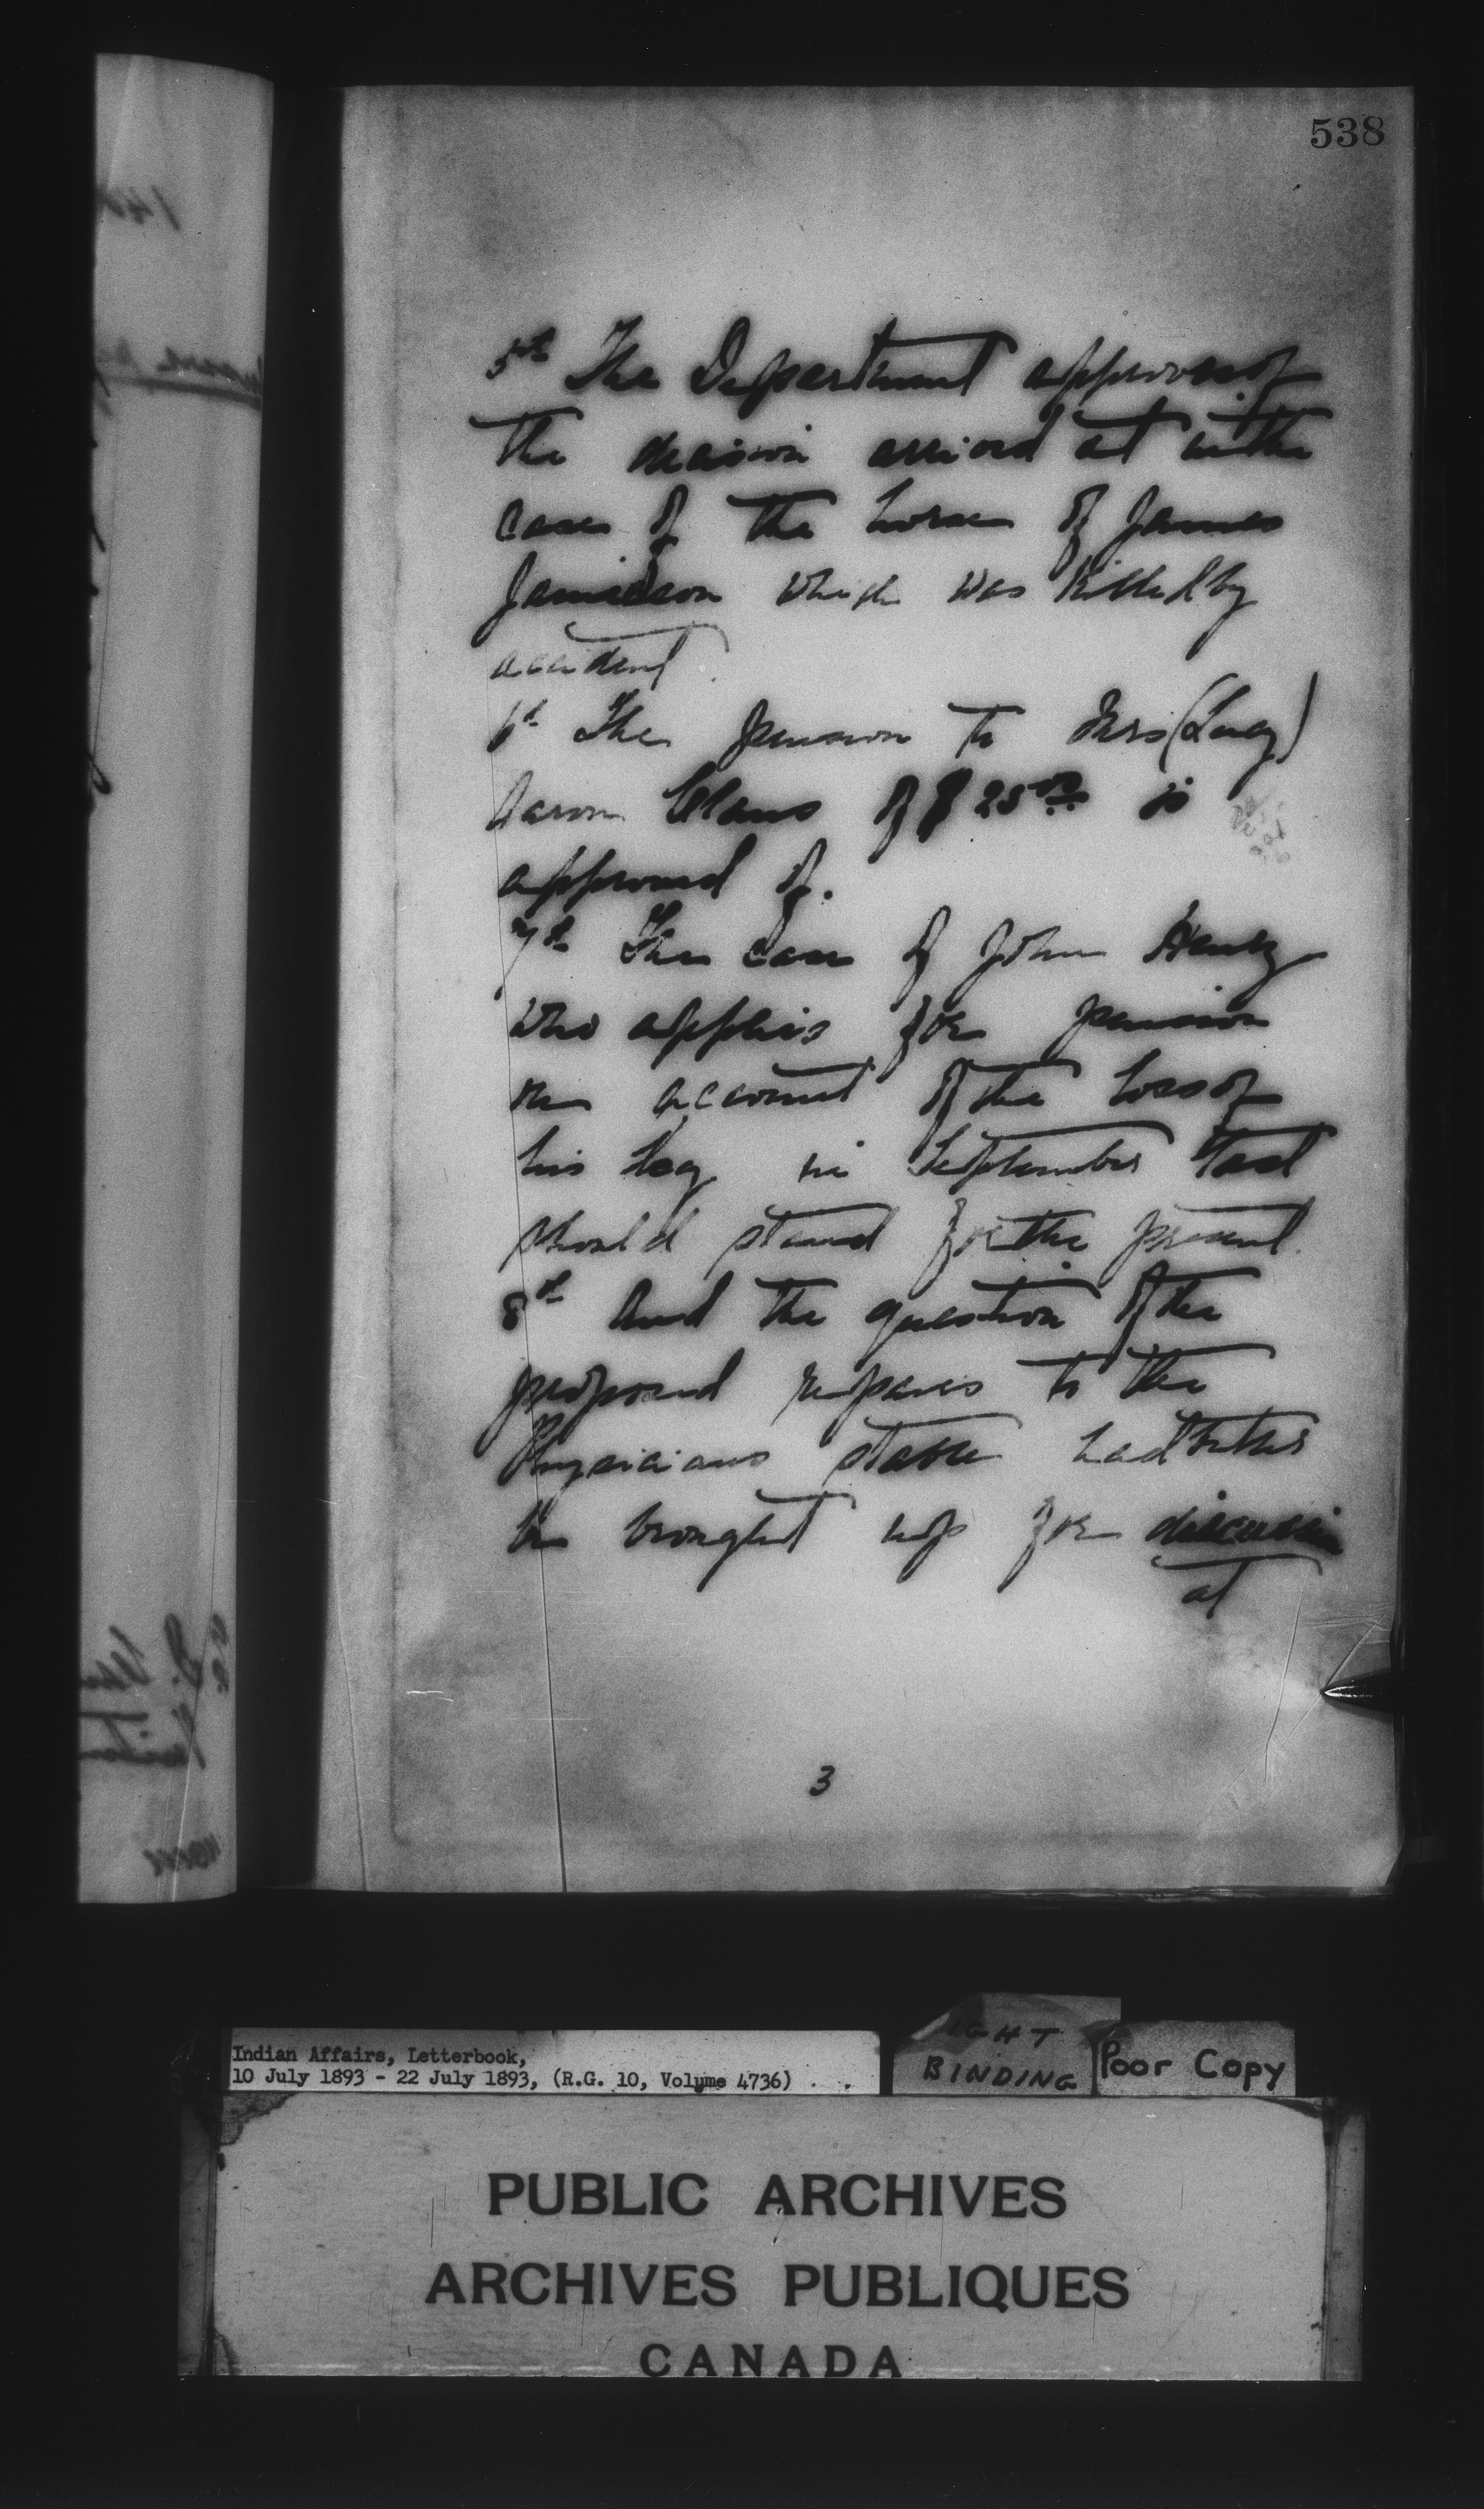 538
5th The Department approves of
the decision arrived at in the
case of the horse of James
Jamieson which was killed by
accident.
6th The pension to Mrs (Lucy)
Aaron Claus of $25.00 is
approved of.
7th The case of John Henry
who applies for pension
on account of the loss of
his leg in September last
should stand for the present.
8th And the question of the
proposed repairs to the
Physicians stable had better
be brought up for discussion
at
3
Indian Affairs, Letterbook,
10 July 1893 - 22 July 1893, (R.G. 10, Volume 4736)
BINDING
Poor Copy
PUBLIC ARCHIVES
ARCHIVES PUBLIQUES
CANADA